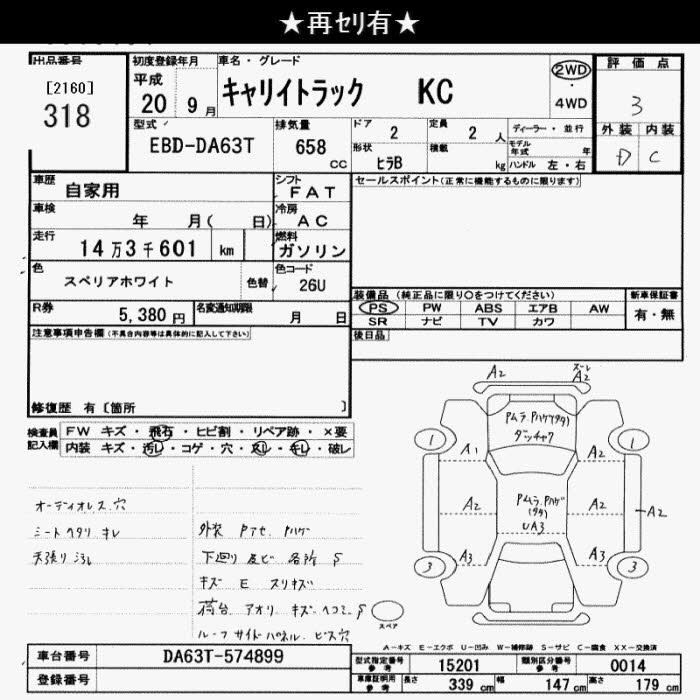 ★再セリ有★
出品番号 初度登録年月 車名・グレード 評価点
[2160] 平成 2WD
318 20年9月 キャリイトラック KC ・ 3
4WD
型式 排気量 ドア 定員 ディーラー・並行 外装 内装
EBD-DA63T 658 CC 2 2人 モデル年式 年 D C
形状 積載
ヒラB kg ハンドル 左・右
車歴 自家用 シフト FAT セールスポイント(正常に機能するものに限ります)
車検 年 月( 日) 冷房 AC
走行 14万3千601 km 燃料 ガソリン
色 スペリアホワイト 色替 色コード 26U
装備品(純正品に限り○をつけてください) 新車保証書
R券 5,380円 名変通知期限 月 日 PS PW ABS エアB AW 有・無
SR ナビ TV カワ
注意事項申告欄(不具合内容等は具体的に記入して下さい) 後日品
修復歴 有〔箇所 〕
検査員記入欄 FW キズ・飛石・ヒビ割・リペア跡・×要
内装 キズ・汚レ・コゲ・穴・スレ・キレ・破レ
A2 ズレ A2
Pムラ.Pハゲ(タタ)
ダッチャク
1 1
A1 A2
A2 Pムラ.Pハゲ A2 A2
(タタ)
UA3
A3 A3
3 3
スペア
オーディオレス.穴
シートヘタリ キレ 外装 Pアセ Pハゲ
天張り汚レ 下廻り 及び 各所 S
キズ E スリキズ
荷台 アオリ キズ.ヘコミ S
ルーフ サイドパネル ビス穴
A-キズ E-エクボ U-凹み W-補修跡 S-サビ C-腐食 XX-交換済
車台番号 DA63T-574899
型式指定番号 参考 15201 類別区分番号 参考 0014
登録番号
車庫証明用 参考 長さ 339cm 幅 147cm 高さ 179cm